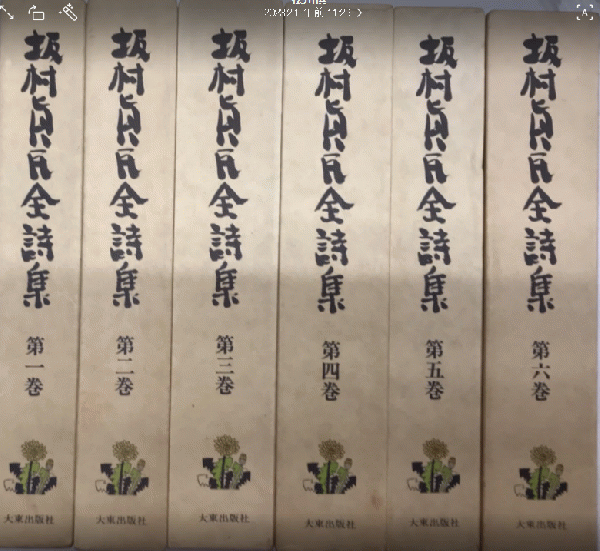 坂村真民全詩集
第一巻
大東出版社
坂村真民全詩集
第二巻
大東出版社
坂村真民全詩集
第三巻
大東出版社
坂村真民全詩集
第四巻
大東出版社
坂村真民全詩集
第五巻
大東出版社
坂村真民全詩集
第六巻
大東出版社